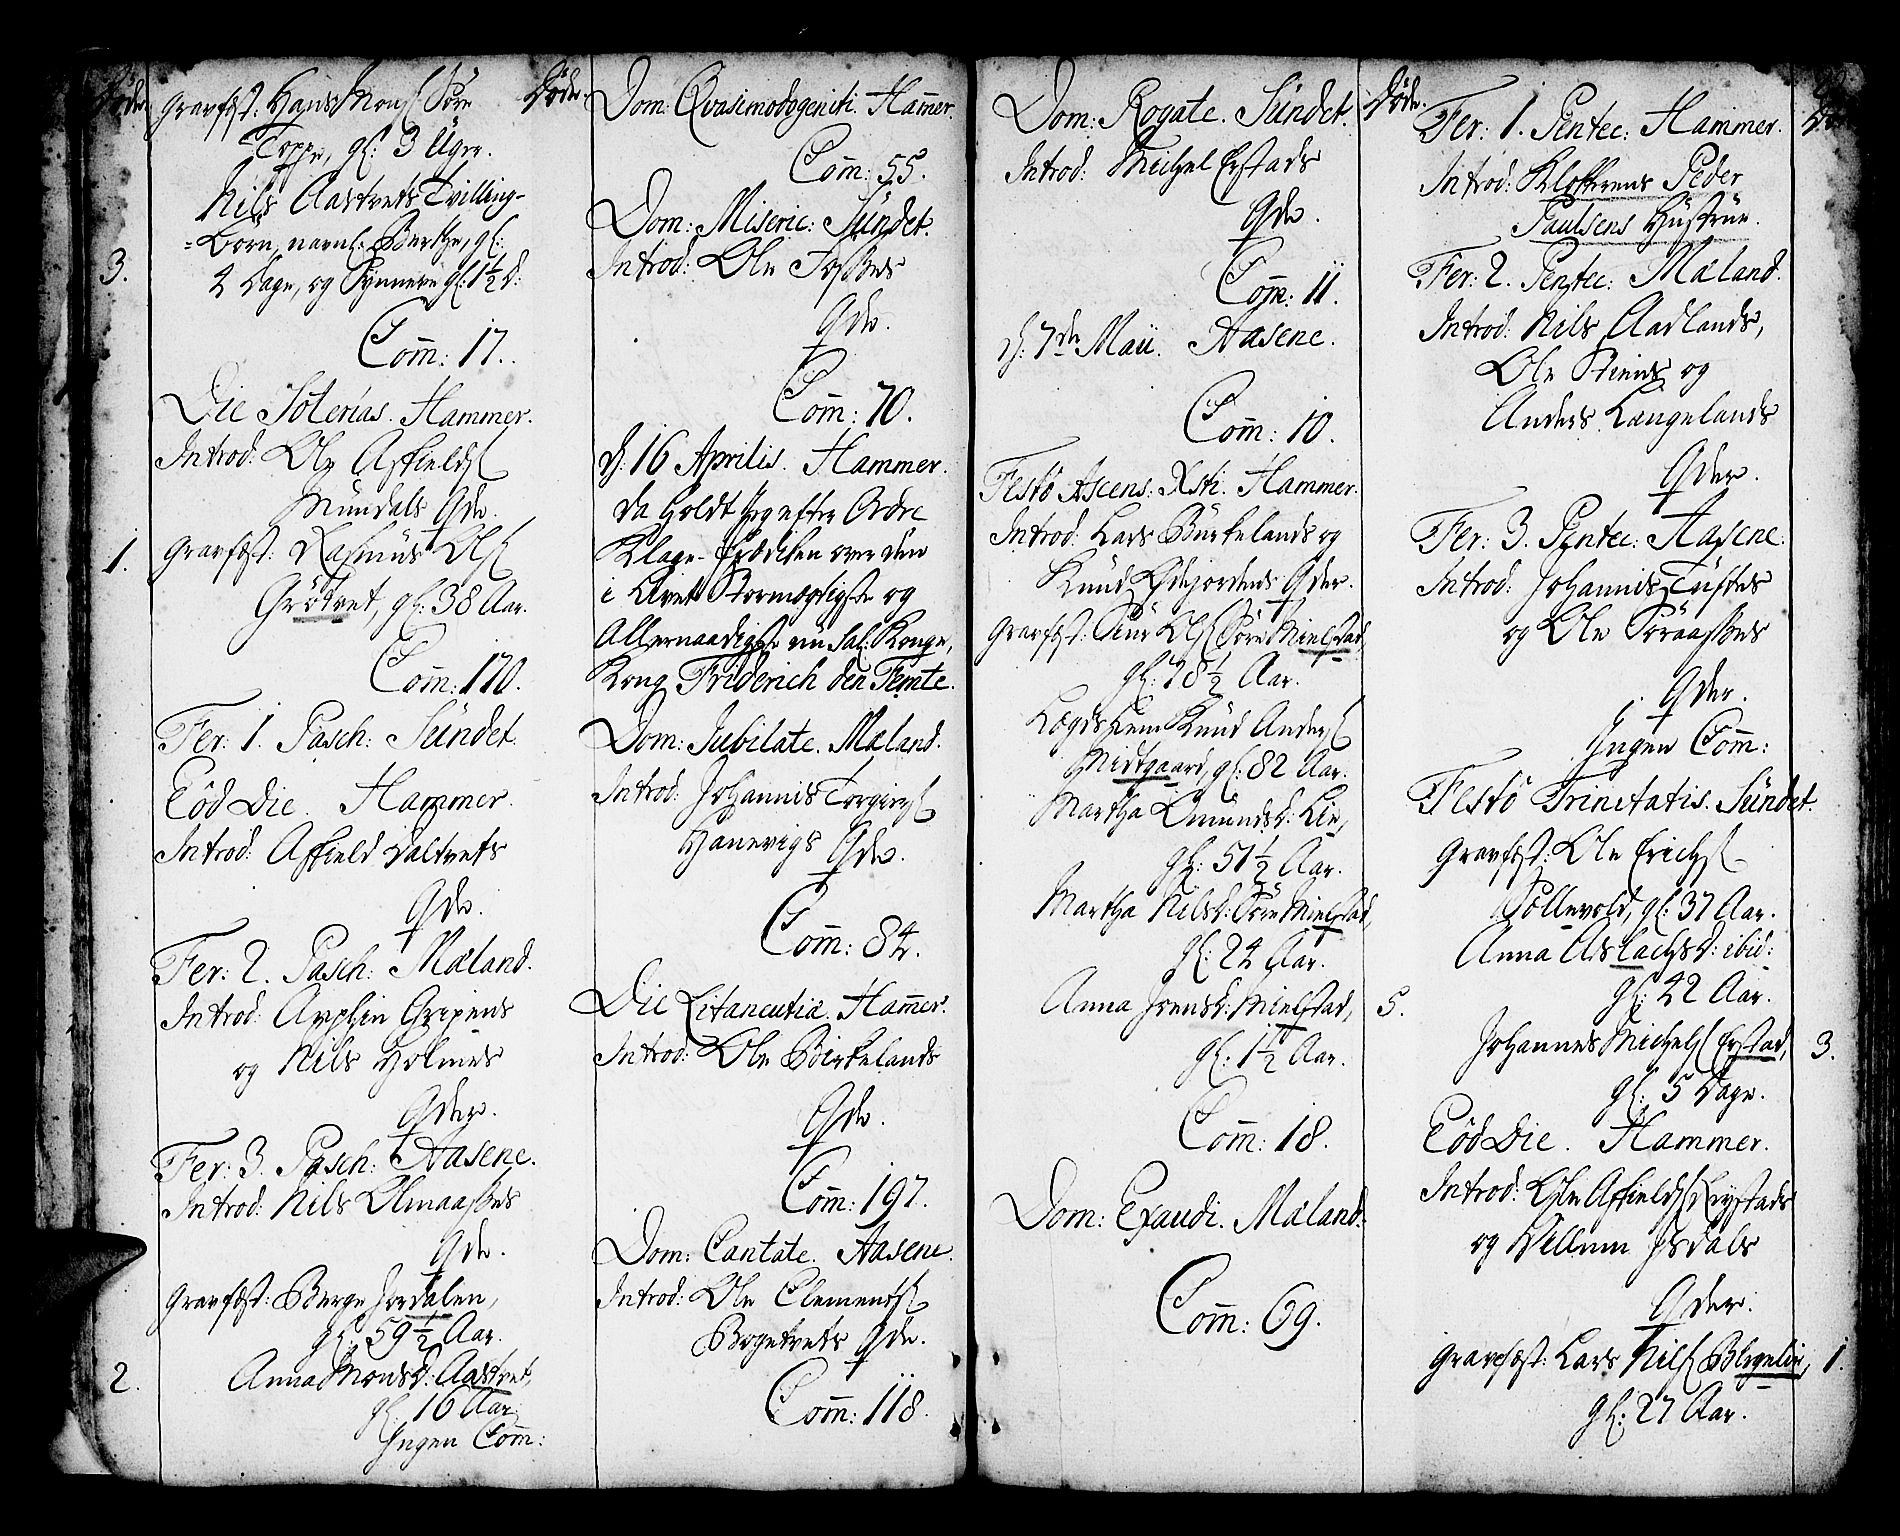 Døde
Gravfæst: Hans Mons S. Søre
Toppe, gl: 3 Uger.
Nils Aastvets Tvilling-
=børn, navnl. Berthe, gl:
3.
4 Dage, og Synneve gl: 1½ D:
Com̄: 17.
Die Soterias. Hammer.
Introd: Ole Asfields
Mundals Qde.
1.
Gravfæst: Rasmus Ols
Grøtvet, gl: 38 Aar.
Com̄: 170.
Fer: 1. Pasch: Sündet.
Eod Die. Hammer.
Introd: Asfield Daltvets
Qde.
Fer: 2. Pasch: Mæland.
Introd: Anphin Gripens
og Nils Holmes
Qder.
Fer: 3. Pasch: Aasene.
Introd: Nils Olmaasbes
Qde.
Gravfæst: Berge Jordalen,
gl: 59½ Aar.
2.
Anna Monsd: Aastvet,
gl: 16 Aar.
Ingen Com̄:
Døde.
Dom: Qvasimodogeniti. Ham̄er.
Com̄: 55.
Dom: Miseric: Sündet.
Introd: Ole
Qde.
Com̄: 70.
d: 16 Aprilis. Hammer.
da holdt Jeg efter Ordre
Klage-Prædiken over den
i Livet Stormægtigste og
Allernaadigste nu Sal: Konge,
Kong Friderich den Femte.
Dom: Jubilate. Mæland.
Introd: Johannis Torgers
Hanevigs Qde.
Com̄: 84.
Die Litaneutiæ. Ham̄er.
Introd: Ole Birkelands
Qde.
Com̄: 197.
Dom: Cantate. Aasene.
Introd: Ole Clements
Bogetvets Qde.
Com̄: 118.
Dom: Rogate. Sündet.
Introd: Michel Erstads
Qde.
Com̄: 11.
d: 7de Maii. Aasene.
Com̄: 10.
Festo Ascens: Xsti. Hammer.
Introd: Lars Bürkelands og
Knud Qder.
Gravfæst: Ols Søre Mielstad,
gl: 78½ Aar.
Lægds Lem Knud Anders
Midtgaard, gl: 82 Aar.
Martha Omundsd: Lie,
gl: 51½ Aar.
Martha Nilsd: Søre Mielstad,
gl: 24 Aar.
Anna Jvensd: Mielstad,
5.
gl: 1½ Aar.
Com̄: 18.
Dom: Exaudi. Mæland.
Com̄: 69.
Døde.
Fer: 1. Pentec: Hammer.
Introd: Klokkerens Peder
Paulsens Hustrue.
Fer: 2. Pentec: Mæland.
Introd: Nils Aadlands,
Ole Stiens og
Anders Langelands
Qder.
Fer: 3. Pentec: Aasene.
Introd: Johannis Tuftes
og Ole
Qder.
Ingen Com̄:
Festo Trinitatis. Sündet.
Gravfæst: Ole Erichs
Sollevold, gl: 37 Aar.
Anna Aslachsd: ibid:
gl: 42 Aar.
Johannes Michels Erstad,
3.
gl: 5 Dage.
Eod Die. Hammer.
Introd: Ole Asfields Rystads
og Vellum Isdals
Qder.
Gravfæst: Lars Nils Blegelie,
1.
gl: 27 Aar.